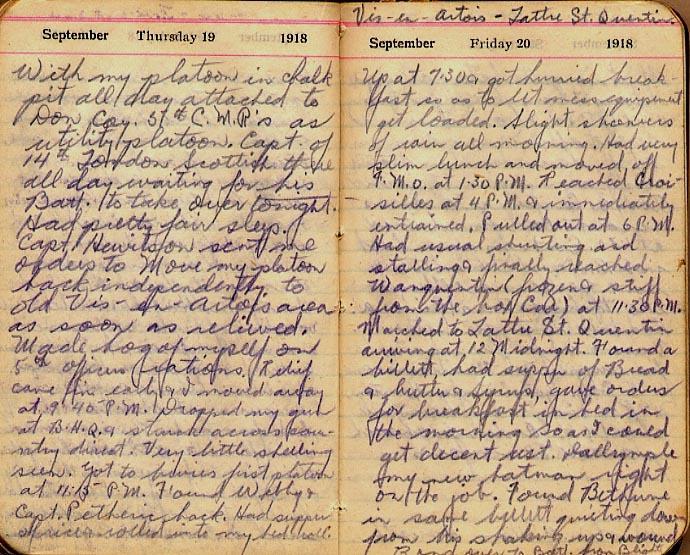 September Thursday 19 1918
With my platoon in chalk
pit all day attached to
Don Coy. 5th C.M.R's as
utility platoon. Capt. of
14th London Scottish there
all day waiting for his
Batt. to take over tonight.
Had pretty fair sleep.
Capt. Hewitson sent me
orders to Move my platoon
back independently to
old Vis-en-Artois area
as soon as relieved.
Made hog of myself on
5th officers rations. Relief
came in early & I moved away
at 9:40 P.M. Dropped my gun
at B.H.Q. & struck across coun-
try direct. Very little shelling
seen. Got to bivvies first platoon
at 11:15 P.M. Found Webby &
Capt. Petherick back. Had supper
& rolled into my bed roll
Vis-en-Artois - Lattre St. Quentin
September Friday 20 1918
Up at 7.30 & got hurried break-
fast so as to let mess equipment
get loaded. Slight showers
of rain all morning. Had very
slim lunch and moved off
at 1.30 P.M. Reached Croi-
silles at 4 P.M. & immediately
entrained. Pulled out at 6 P.M.
Had usual shunting and
stalling & finally reached
Wanquentin (frozen & stiff
from the box Car) at 11.30 P.M.
Marched to Lattre St. Quentin
arriving at 12 Midnight. Found a
billett, had supper of Bread
& butter & syrup, gave orders
for breakfast in bed in
the morning so as I could
get decent rest. Dalrymple
my new batman right
on the job. Found Bethune
in same billett quieting down
from his shaking up & wound